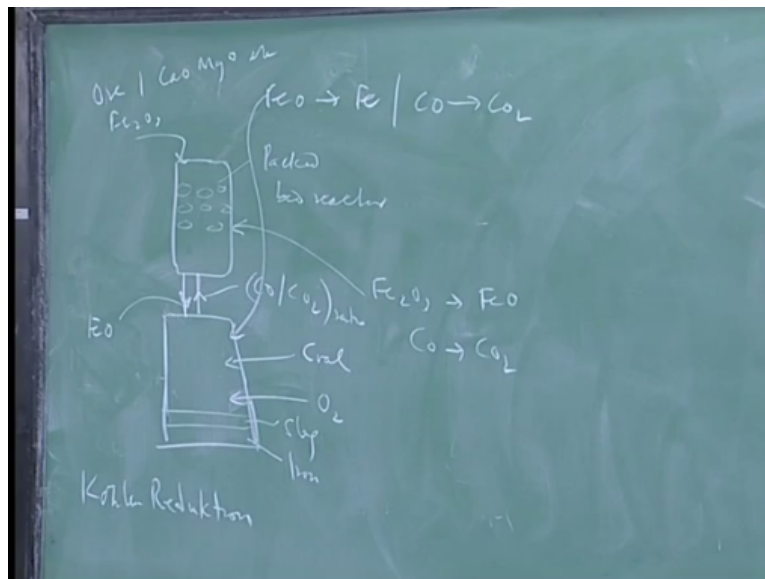 Ore / CaO MgO etc
Fe2O3
FeO → Fe | CO → CO2
Packed
bed reactor
(CO/CO2) ratio
Fe2O3 → FeO
CO → CO2
FeO
Coal
O2
Slag
Iron
Kohle Reduktion